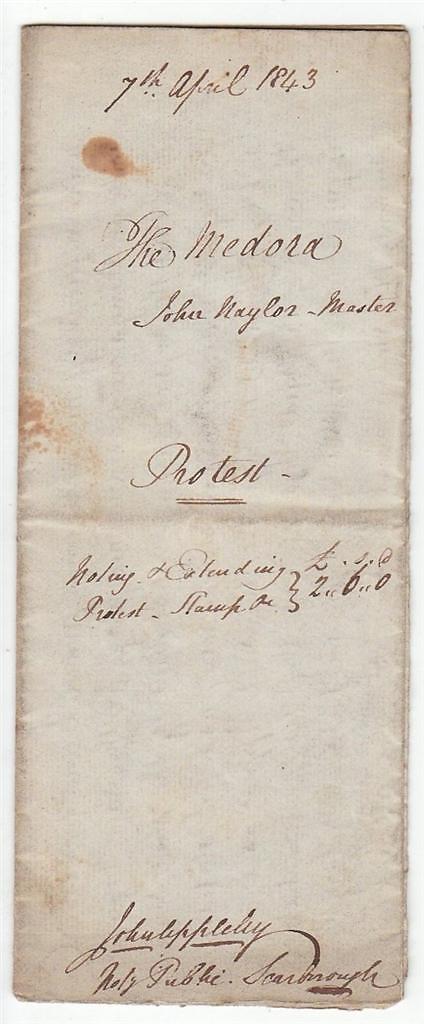 7th April 1843
The Medora
John Naylor - Master
Protest -
Noting & Extending } £ . s . d
Protest - Stamp &c } 2 ,, 6 ,, 0
John Appleby
Noty Public. Scarbrough